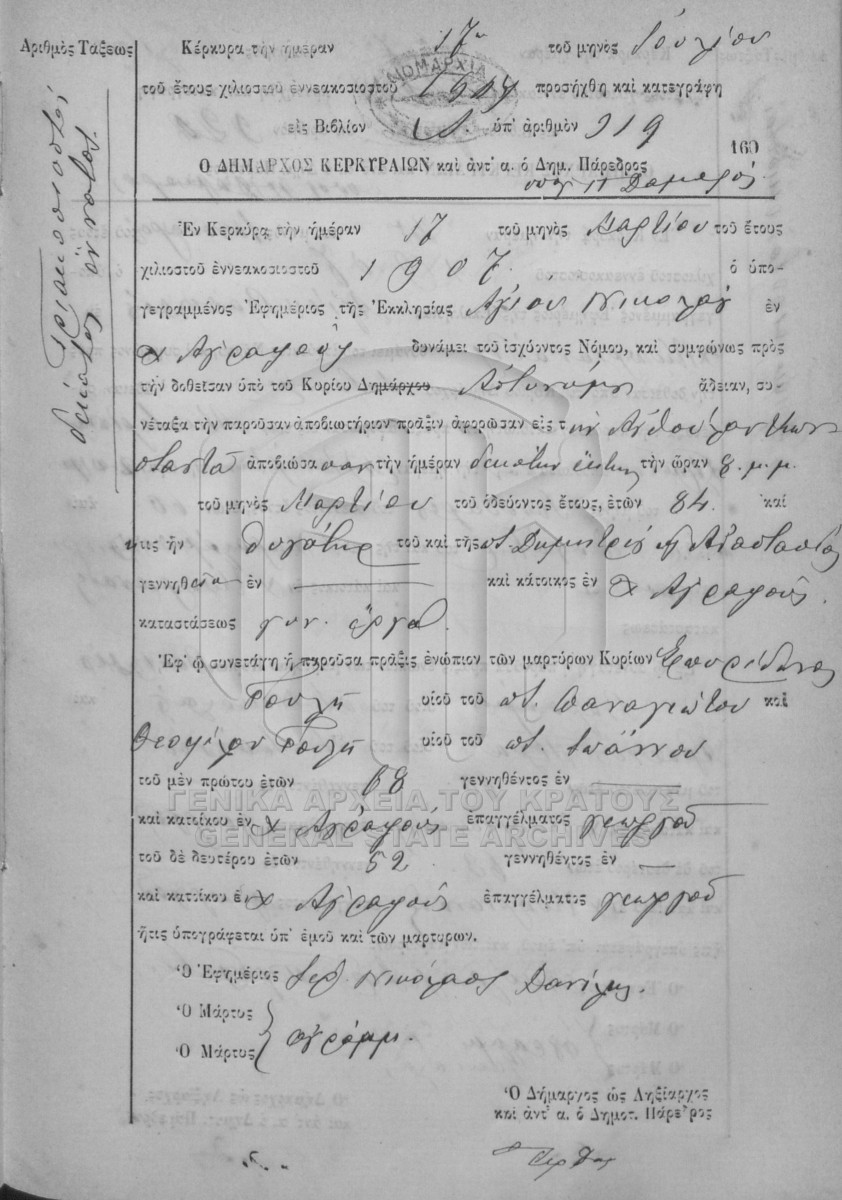 Ἀριθμὸς Τάξεως
Τριακοσιοστὸς
δέκατος ἔννατος
Κέρκυρα τὴν ἡμέραν 17 τοῦ μηνὸς Ἰουλίου
τοῦ ἔτους χιλιοστοῦ ἐννεακοσιοστοῦ προσήχθη καὶ κατεγράφη
ΝΟΜΑΡΧΙΑ
εἰς Βιβλίον ὑπ' ἀριθμὸν 319
160
Ο ΔΗΜΑΡΧΟΣ ΚΕΡΚΥΡΑΙΩΝ καὶ ἀντ' α. ὁ Δημ. Πάρεδρος
Ἐν Κερκύρᾳ τὴν ἡμέραν 17 τοῦ μηνὸς Μαρτίου τοῦ ἔτους
χιλιοστοῦ ἐννεακοσιοστοῦ 1907 ὁ ὑπο-
γεγραμμένος Ἐφημέριος τῆς Ἐκκλησίας Ἁγίου Νικολάου ἐν
χ Ἀγραφοὺς δυνάμει τοῦ ἰσχύοντος Νόμου, καὶ συμφώνως πρὸς
τὴν δοθεῖσαν ὑπὸ τοῦ Κυρίου Δημάρχου Ἀστυνόμου ἄδειαν, συ-
νέταξα τὴν παροῦσαν ἀποβιωτήριον πρᾶξιν ἀφορῶσαν εἰς τὴν
ἀποβιώσασαν τὴν ἡμέραν δεκάτην ἕκτην τὴν ὥραν 8. μ. μ.
τοῦ μηνὸς Μαρτίου τοῦ ὁδεύοντος ἔτους, ἐτῶν 84 καὶ
ἥτις ἦν θυγάτηρ τοῦ καὶ τῆς ποτ. Δημητρίου Ἀναστασίας
γεννηθεῖσα ἐν καὶ κάτοικος ἐν χ Ἀγραφούς.
καταστάσεως
Ἐφ' ᾧ συνετάγη ἡ παροῦσα πρᾶξις ἐνώπιον τῶν μαρτύρων Κυρίων Σπυρίδωνος
Γούλη υἱοῦ τοῦ ποτ. Παναγιώτου καὶ
Θεοφίλου Γούλη υἱοῦ τοῦ ποτ. Ἰωάννου
τοῦ μὲν πρώτου ἐτῶν 68 γεννηθέντος ἐν
ΓΕΝΙΚΑ ΑΡΧΕΙΑ ΤΟΥ ΚΡΑΤΟΥΣ
καὶ κατοίκου ἐν χ Ἀγραφούς ἐπαγγέλματος γεωργοῦ
GENERAL STATE ARCHIVES
τοῦ δὲ δευτέρου ἐτῶν 52 γεννηθέντος ἐν
καὶ κατοίκου ἐν χ Ἀγραφούς ἐπαγγέλματος γεωργοῦ
ἥτις ὑπογράφεται ὑπ' ἐμοῦ καὶ τῶν μαρτύρων.
Ὁ Ἐφημέριος Νικόλαος
Ὁ Μάρτυς
Ὁ Μάρτυς ἀγράμμ.
Ὁ Δήμαρχος ὡς Ληξίαρχος
καὶ ἀντ' α. ὁ Δημοτ. Πάρεδρος